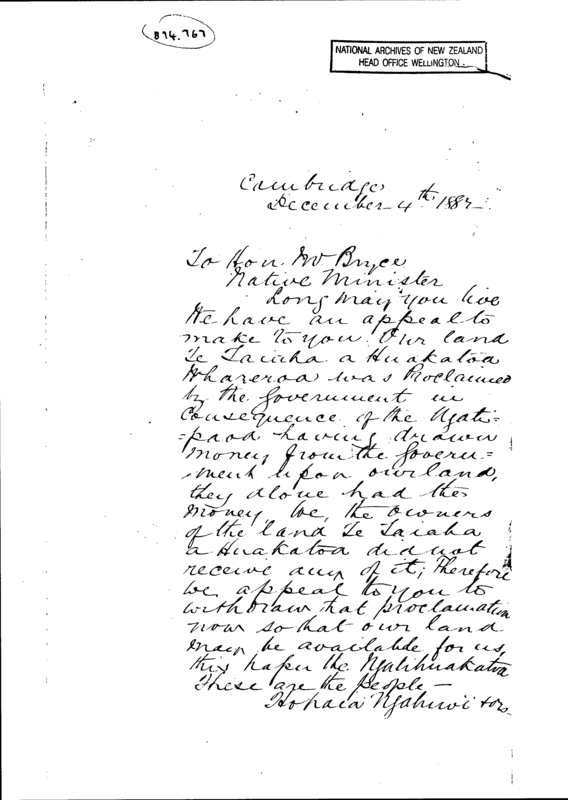 B74.767
NATIONAL ARCHIVES OF NEW ZEALAND
HEAD OFFICE WELLINGTON
Cambridge
December 4th 188
To Hon. Mr Bryce
Native Minister
Long may you live
We have an appeal to
make to you. Our land
Te Taiaha a Huakatoa
Whareroa was Proclaimed
by the Government in
Consequence of the Ngati=
=paoa having drawn
money from the Govern=
=ment upon our land,
they alone had the
money, we, the owners
of the land Te Taiaha
a Huakatoa did not
receive any of it; Therefore
we appeal to you to
withdraw that proclamation
now so that our land
may be available for us,
this hapu the Ngatihuakatoa
These are the people —
Ngahiwi + ors.